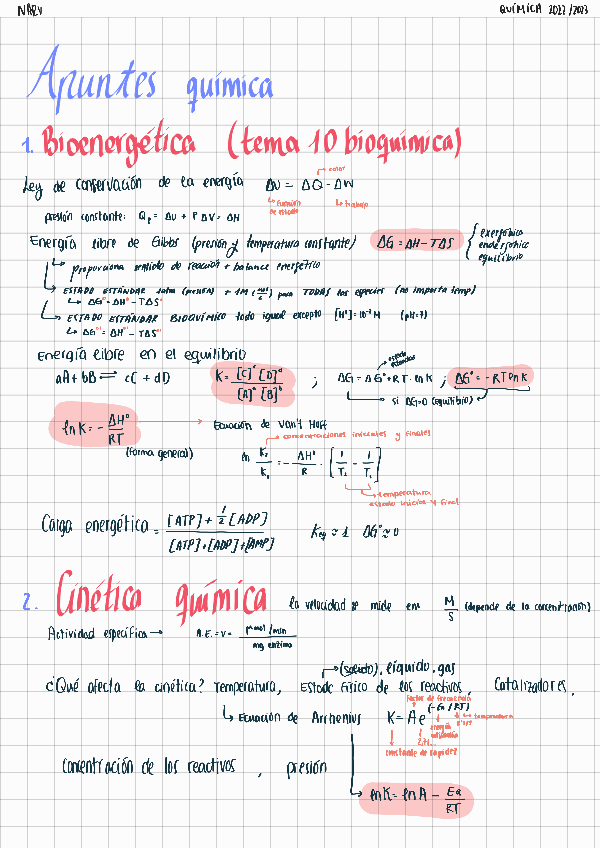 NAZV QUÍMICA 2022/2023
Apuntes química
1. Bioenergética (tema 10 bioquímica)
calor
Ley de conservación de la energía ΔU = ΔQ - ΔW
función de estado trabajo
presión constante: Qp = ΔU + P ΔV = ΔH
Energía libre de Gibbs (presión y temperatura constante) ΔG = ΔH - TΔS { exergónico
endergónico
equilibrio
proporciona sentido de reacción + balance energético
ESTADO ESTÁNDAR 1atm (presión) + 1M (mol/L) para TODAS las especies (no importa temp)
ΔG° = ΔH° - TΔS°
ESTADO ESTÁNDAR BIOQUÍMICO todo igual excepto [H⁺] = 10⁻⁷ M (pH=7)
ΔG°' = ΔH°' - TΔS°'
Energía libre en el equilibrio
estado estándar
aA + bB ⇌ cC + dD K = [C]ᶜ [D]ᵈ / [A]ᵃ [B]ᵇ ; ΔG = ΔG° + RT · ln K ; ΔG° = - RT ln K
si ΔG=0 (equilibrio)
ln K = - ΔH° / RT → Ecuación de Van't Hoff
(forma general) concentraciones iniciales y finales
ln K₂/K₁ = - ΔH°/R · [1/T₂ - 1/T₁]
temperatura
estado inicial y final
Carga energética = [ATP] + 1/2 [ADP] / [ATP]+[ADP]+[AMP] Keq ≈ 1 ΔG° ≈ 0
2. Cinética química la velocidad se mide en M/s (depende de la concentración)
Actividad específica → A.E. = V = μmol/min / mg enzima
(sólido), líquido, gas
¿Qué afecta la cinética? Temperatura, Estado físico de los reactivos, Catalizadores,
factor de frecuencia
Ecuación de Arrhenius K = A e (-Ea/RT) temperatura
energía activación
constante de rapidez
Concentración de los reactivos, presión
ln K = ln A - Ea/RT